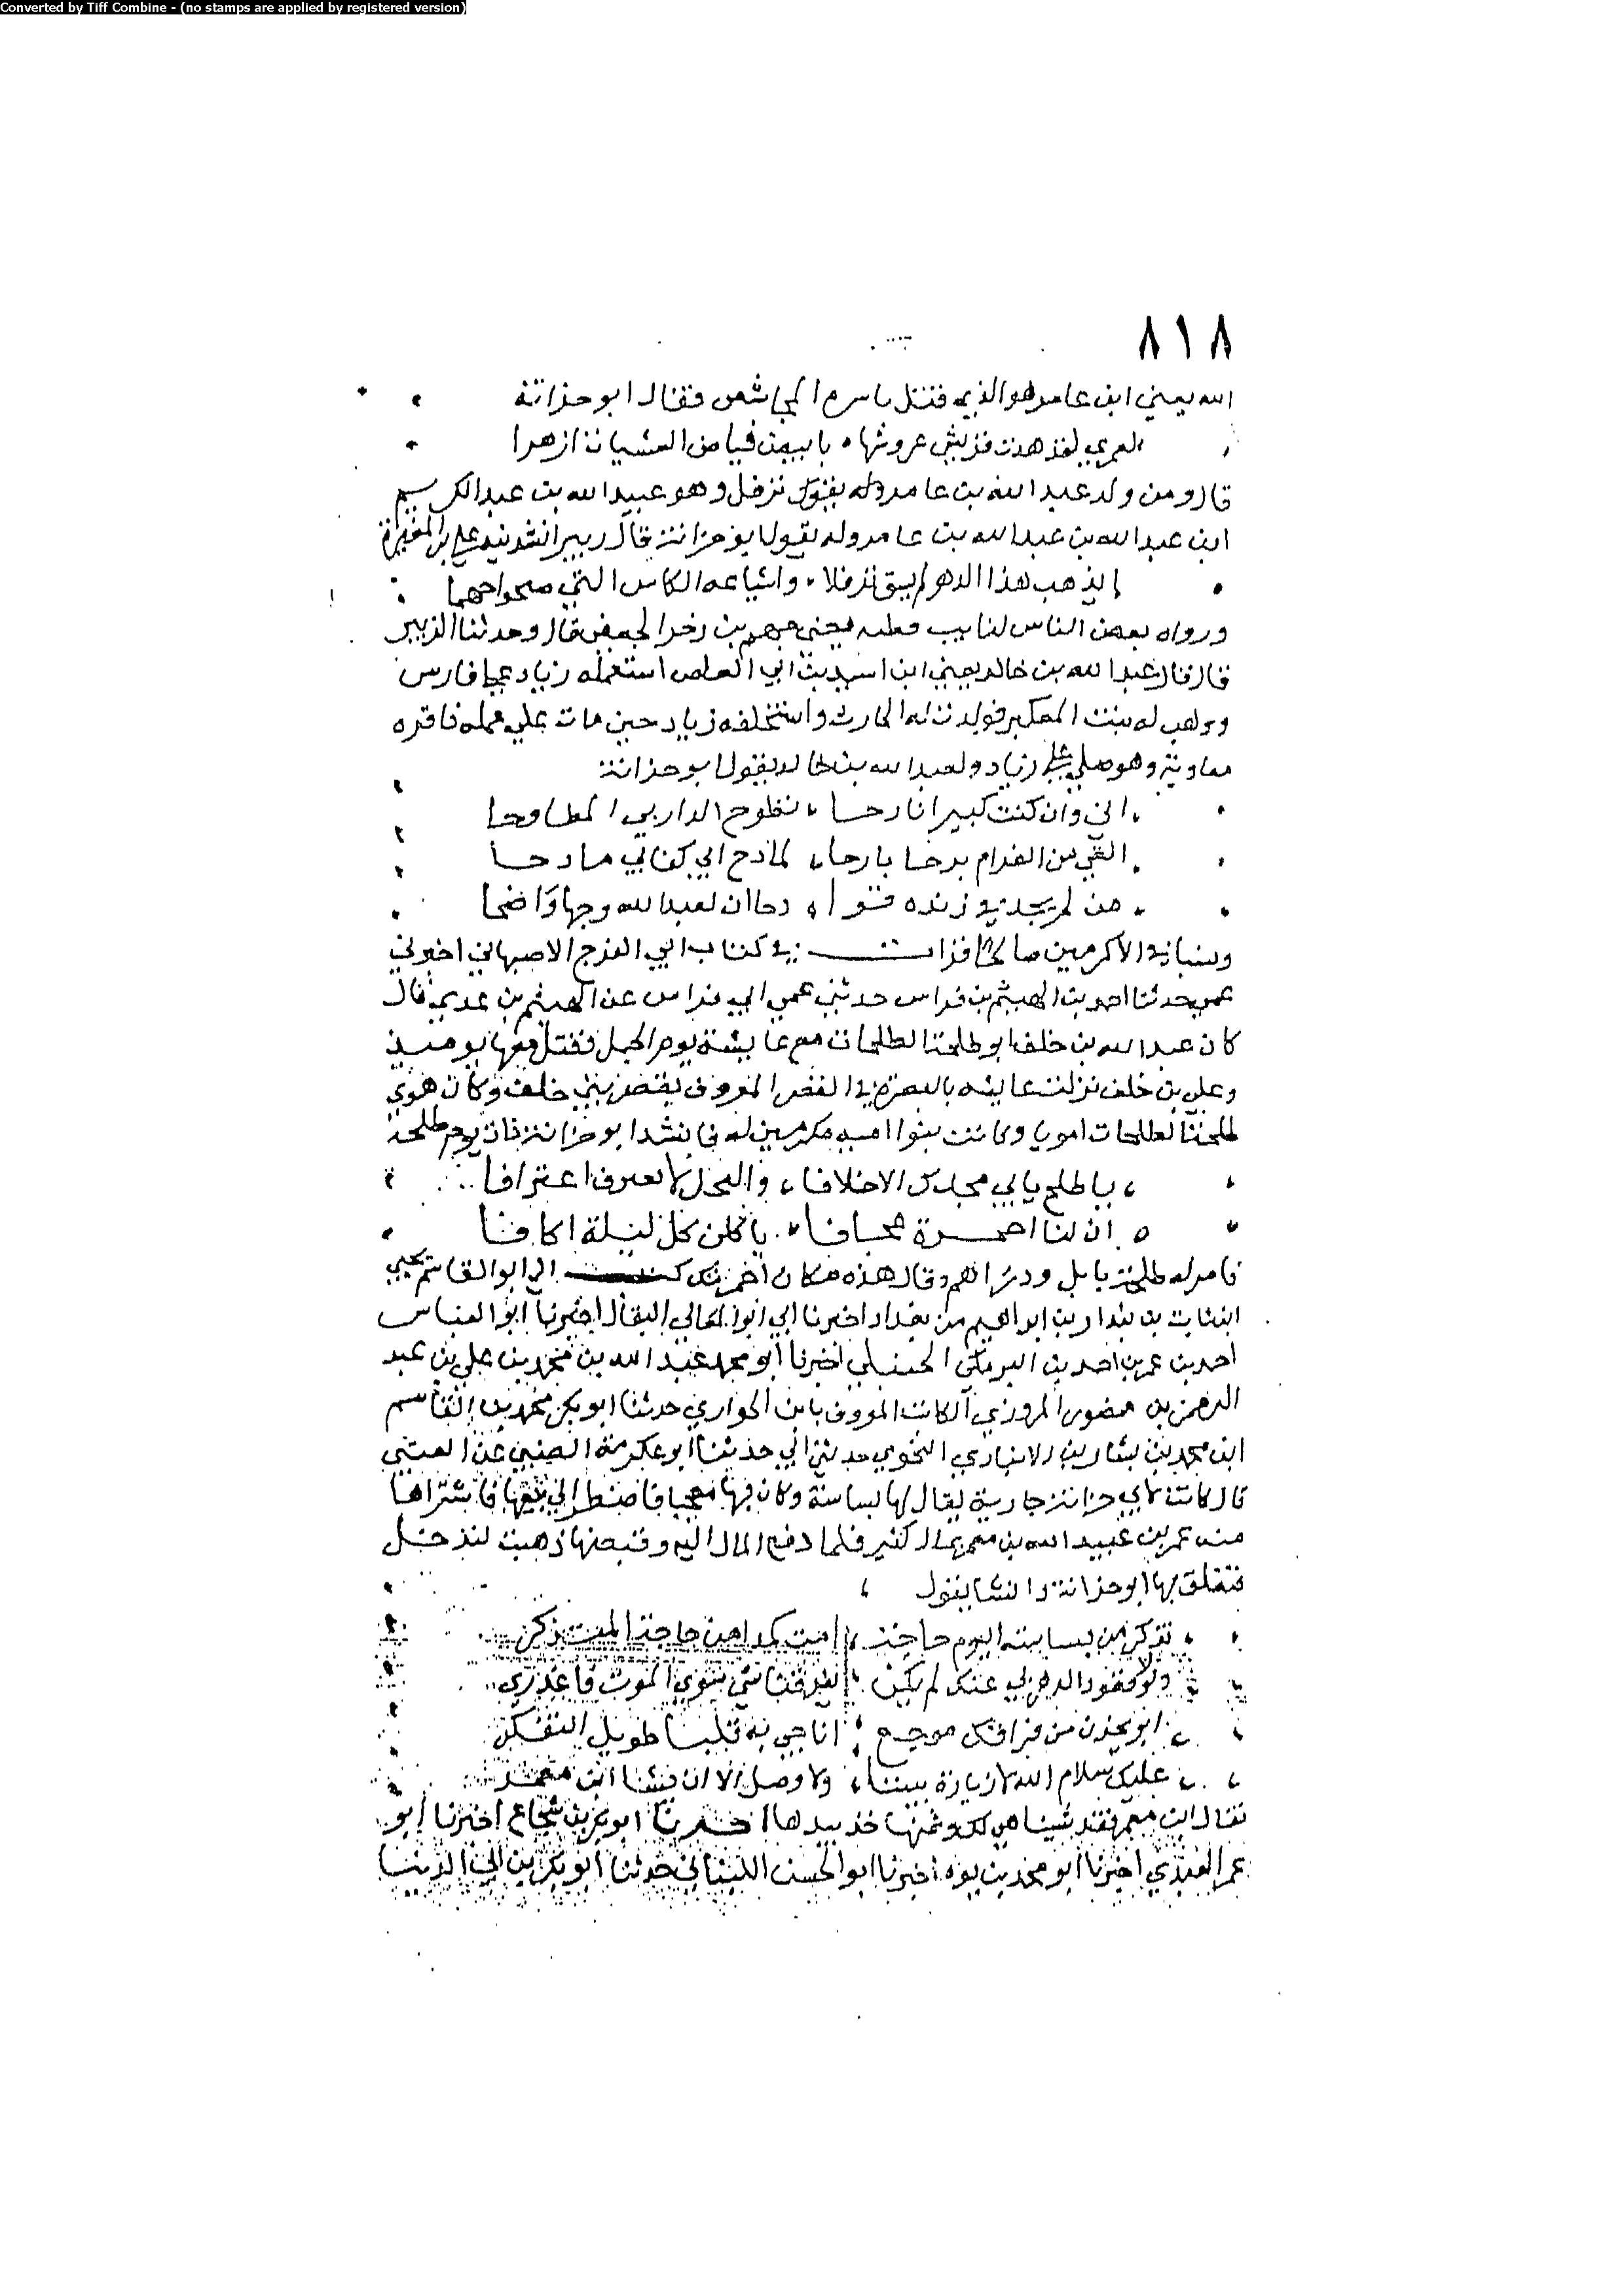 Converted by Tiff Combine - (no stamps are applied by registered version)
٨١٨
الله يعني ابن عامر هو الذي قتل المجاشعي فقال ابو حزانة
لعمري لقد هدت قريش عروشها بابيض فياض العشيات ازهرا
قال ومن ولد عبد الله بن عامر وله يقول نزفل وهو عبيد الله بن عبد الكريم
ابن عبد الله بن عبد الله بن عامر وله يقول ابو حزانة قال زبير انشدنيه علي بن المغيرة
هذا الدهر لم يبق نزفلا واشياعه الكاس التي
ورواه بعض الناس لنا يحيى جهم بن زخر الجعفي قال وحدثنا الزبير
قال قال عبد الله بن خالد يعني ابن اسيد بن ابي العاص استعمله زياد على فارس
ووهب له بنت المعكبر فولدت له الحارث واستخلفه زياد حين مات على عمله فاقره
معاوية وهو صلى على زياد ولعبد الله بن خالد يقول ابو حزانة
اني وان كنت كبيرا نازحا تطوح الدار بي المطاوحا
القى من الغرام برحا بارحا لمادح اني كفاني مادحا
من لم يجد في زنده قوادحا ان لعبد الله وجها واضحا
ونسبا في الاكرمين صالحا قرات في كتاب ابي الفرج الاصبهاني اخبرني
عمي حدثنا احمد بن الهيثم بن فراس حدثني عمي ابي فراس عن الهيثم بن عدي قال
كان عبد الله بن خلف ابو طلحة الطلحات مع عايشة يوم الجمل فقتل معها يوميذ
وعلي بن خلف نزلت عايشه بالبصرة في القصر المعروف بقصر بني خلف وكان هوى
طلحة الطلحات امويا وكانت بنوا اميه مكرمين له فانشد ابو حزانة ذات يوم طلحة
يا طلح يابى مجدك الاخلافا والبخل لا يعترف اعترافا
ان لنا احمرة عجافا ياكلن كل ليلة اكافا
فامر له طلحة بابل ودراهم وقال هذه مكان احمرتك كتب الي ابو القاسم يحيى
ابن ثابت بن بندار بن ابراهيم من بغداد اخبرنا ابي ابو المعالي البقال اخبرنا ابو العباس
احمد بن عمر بن احمد بن البرمكي الحنبلي اخبرنا ابو محمد عبد الله بن محمد بن علي بن عبد
الرحمن بن منصور المروزي الكاتب المعروف بابن الحواري حدثنا ابو بكر محمد بن القاسم
ابن محمد بن بشار بن الانباري النحوي حدثني ابي حدثنا ابو عكرمة الضبي عن العتبي
قال كانت لابي حزانة جارية يقال لها بساسة وكان بها معجبا فاضطر الى بيعها فاشتراها
منه عمر بن عبيد الله بن معمر بمال كثير فلما دفع المال اليه وقبضها ذهبت لتدخل
فتعلق بها ابو حزانة وانشا يقول
تذكر من بساسة اليوم حاجة
ولولا قعود الدهر بي عنك لم يكن يفرقنا شي سوى الموت فاعذري
ابو بحزن من فراقك موجع اناجي به قلبا طويل التفكر
عليك سلام الله لا زيارة بيننا ولا وصل الا ان يشا ابن معمر
فقال ابن معمر فقد شينا هي لك وثمنها خذ بيدها اخبرنا ابو بكر بن شجاع اخبرنا ابو
عمر العبدي اخبرنا ابو محمد بن يوه اخبرنا ابو الحسن اللبناني حدثنا ابو بكر بن ابي الدنيا